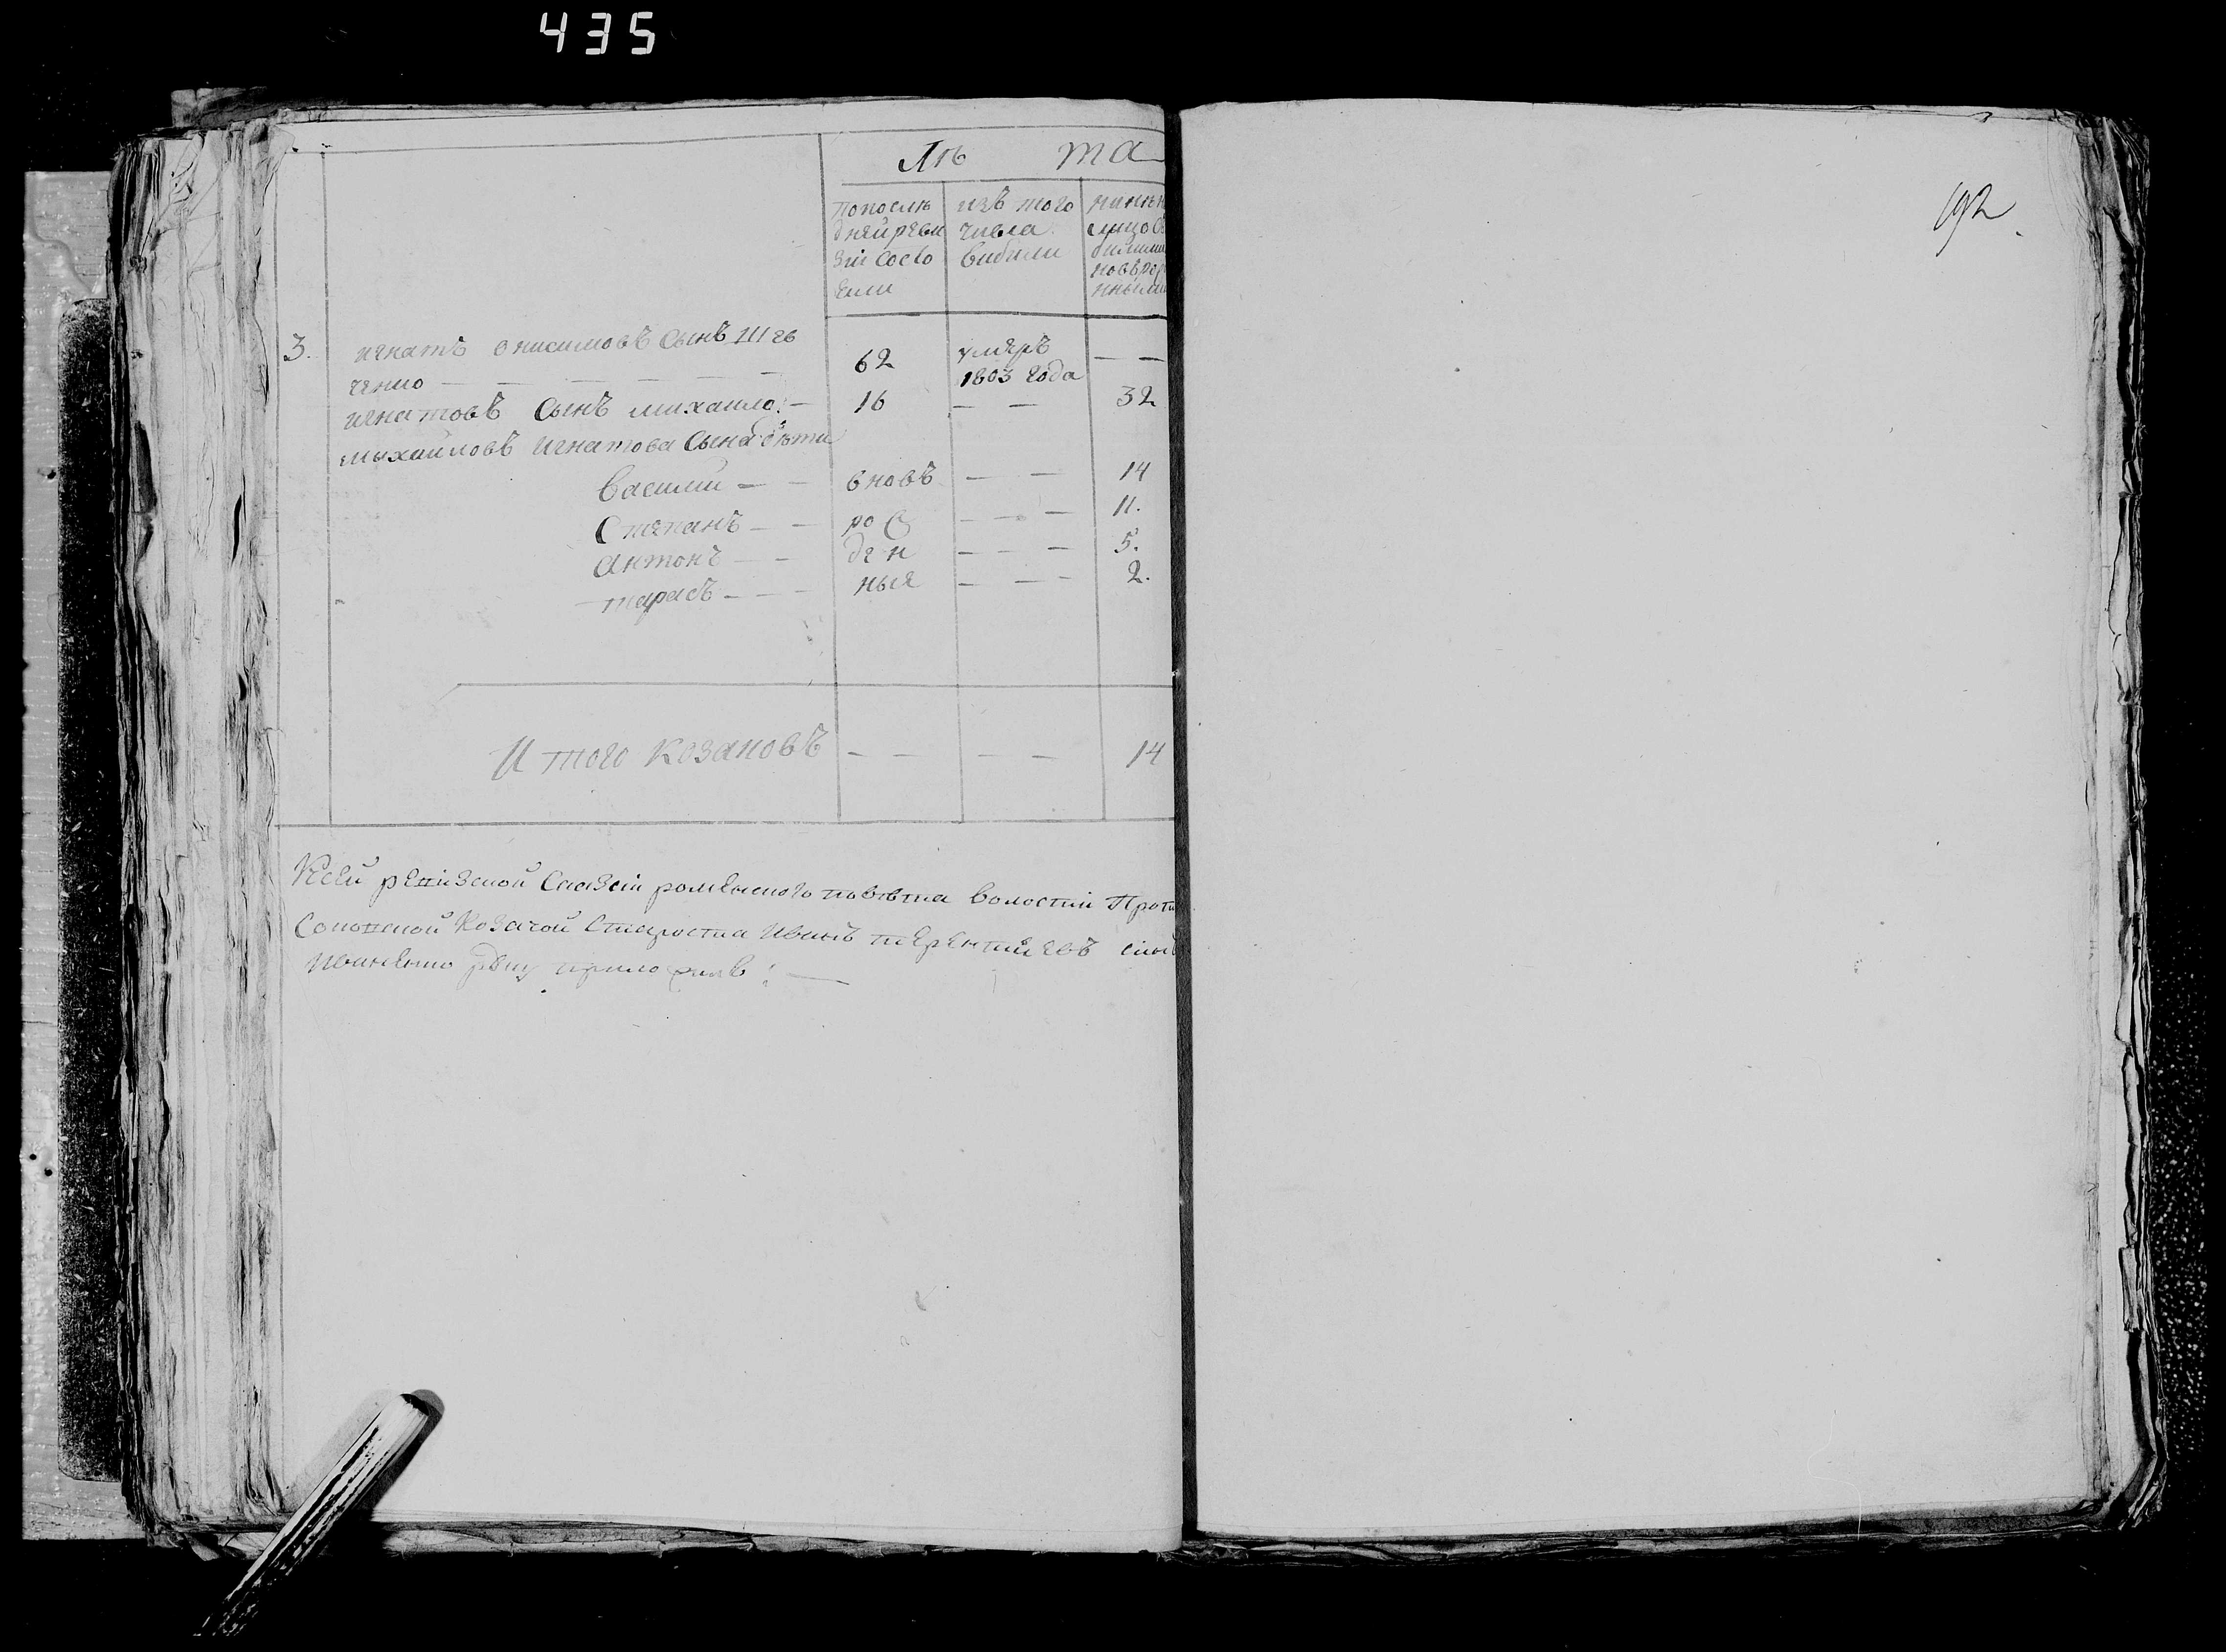 435
192
Лѣ та
Попослѣ
дней реви
зіи состо
яли
изъ того
числа
выбыли
новърож
3. игнатъ онисимовъ сынъ Ше
ченко — — — — — — 62 умеръ 1803 года — —
игнатовъ сынъ михаило: — 16 — — 32
михайловъ игнатова сына дѣти
василий — — вновъ — — 14
Степанъ — — ро — — — 11.
антонъ — — ден — — — 5.
тарасъ — — — ныя — — — 2.
Итого козаковъ — — — — 14
Ксей ревизской Сказки роменского повѣта волости
козачой Староста Иванъ терентиевъ
руку приложилъ: —